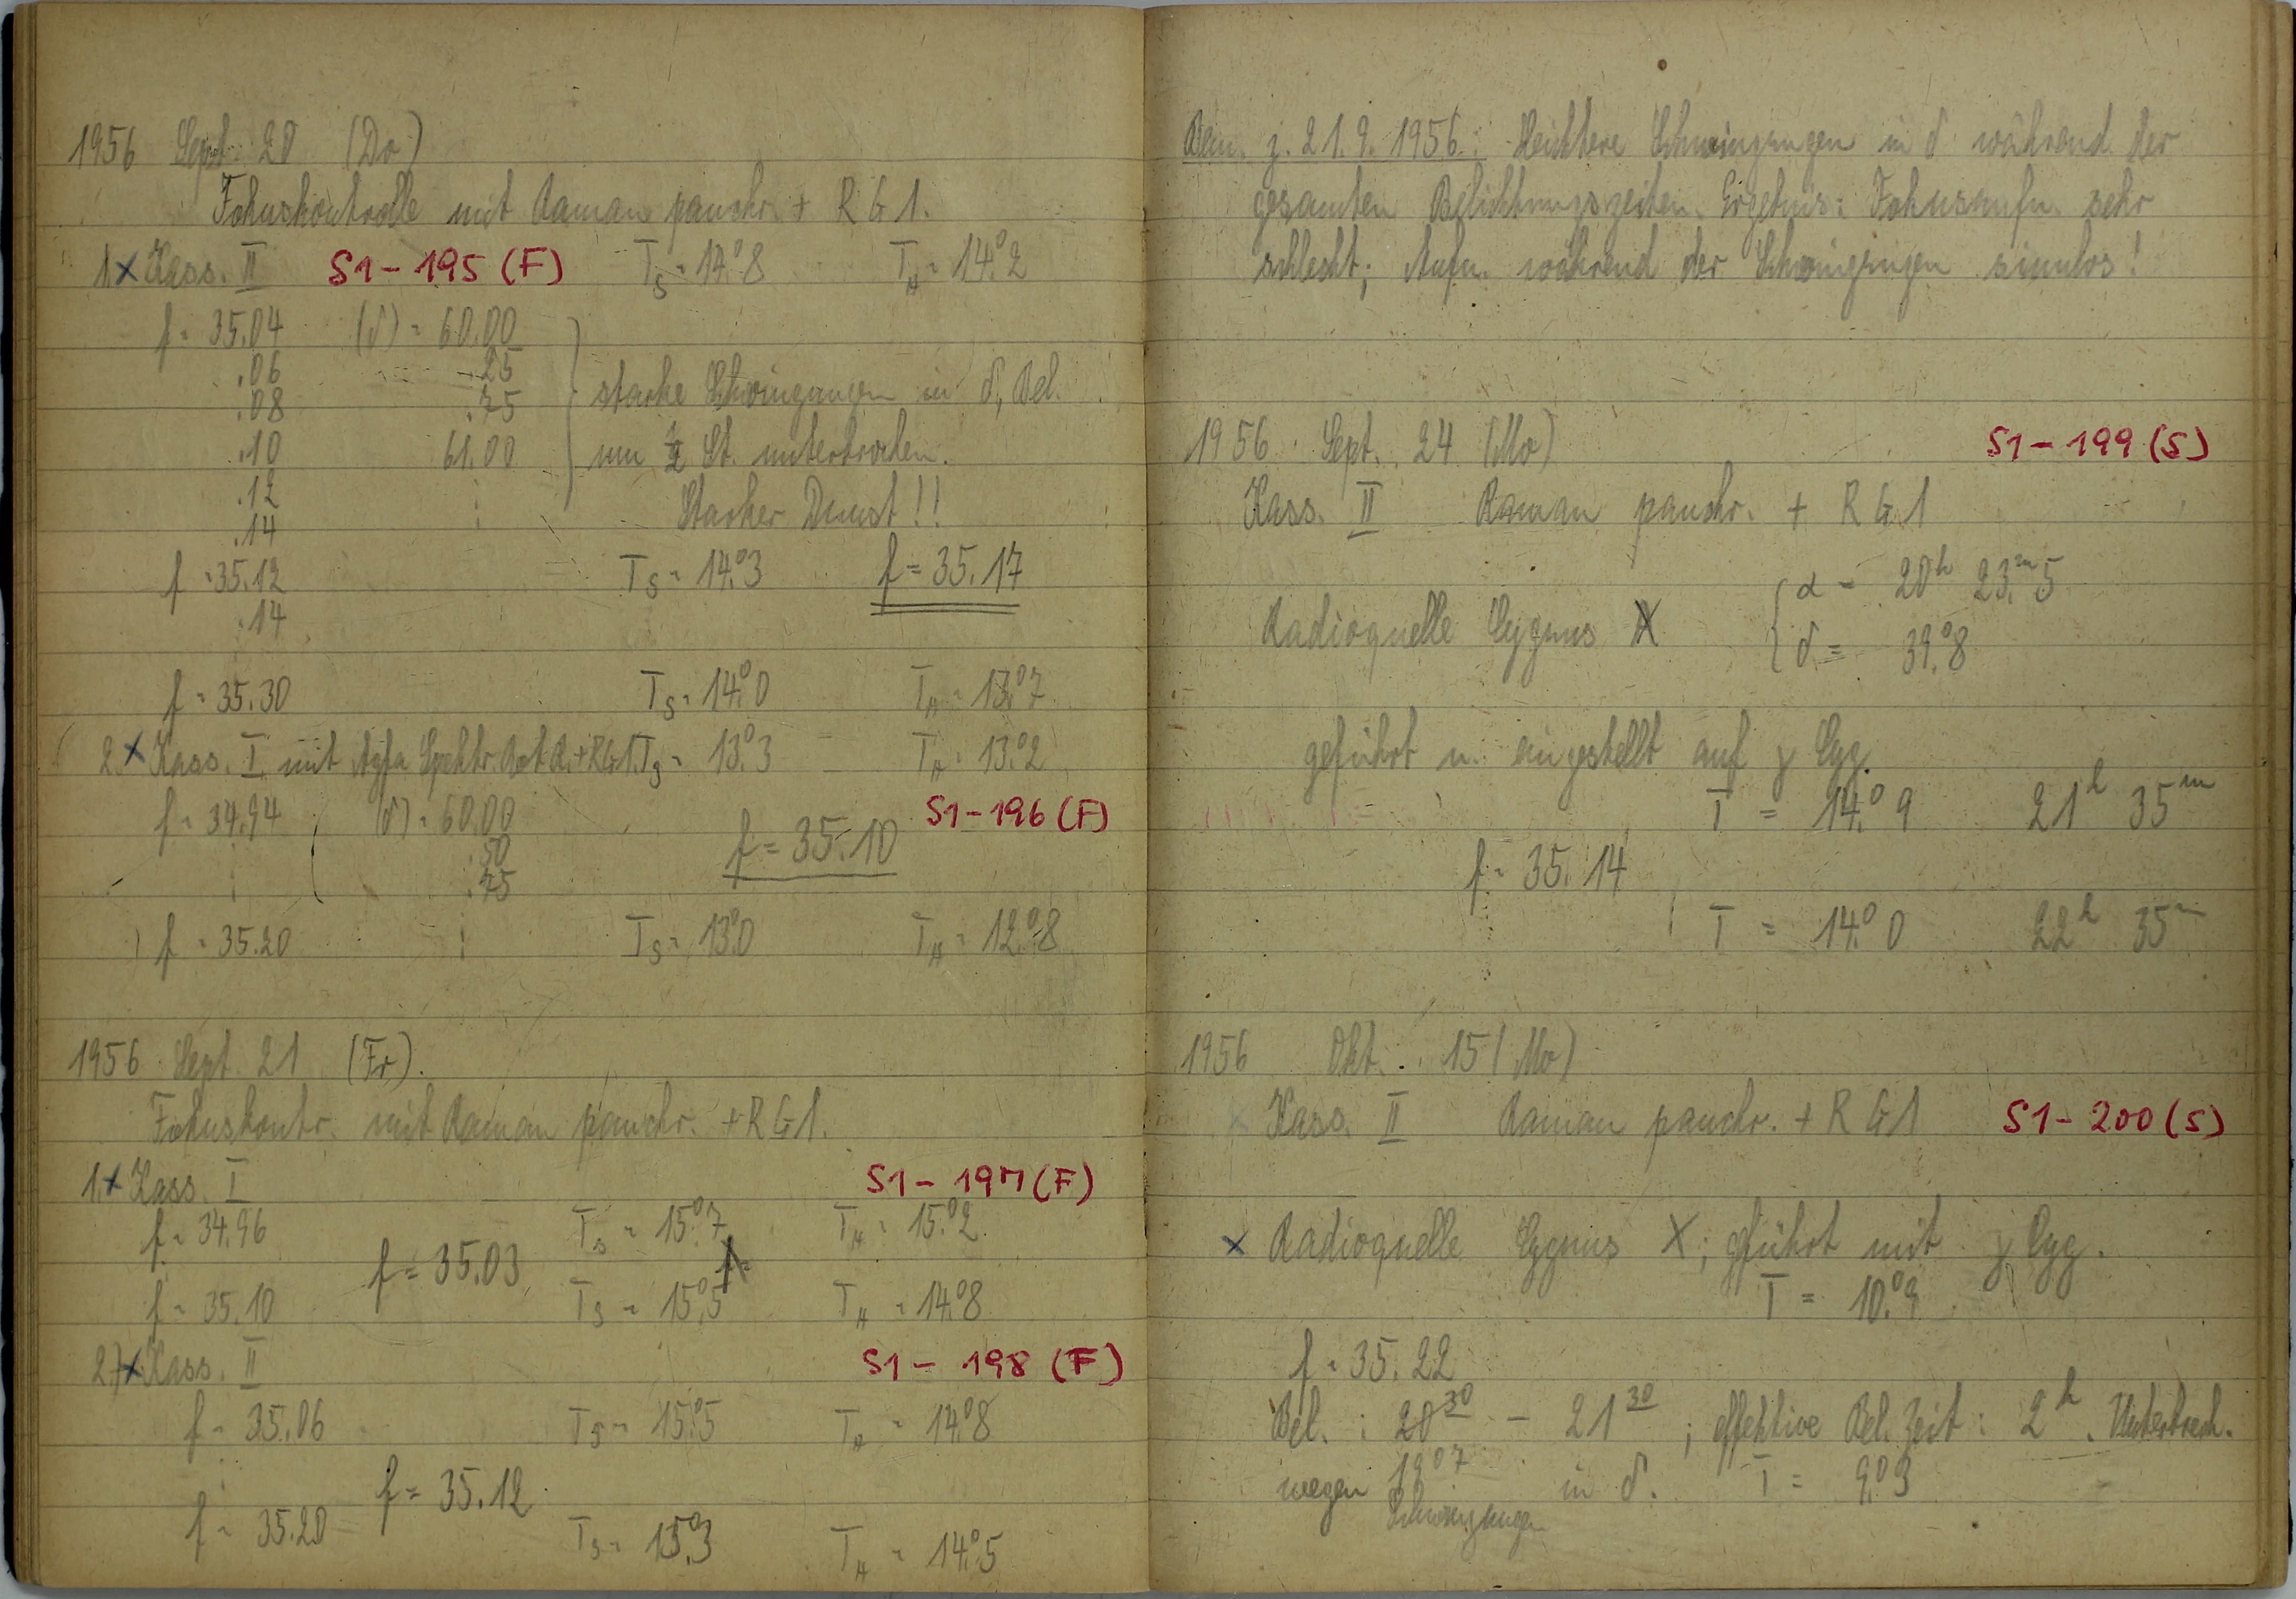 1956 Sept. 20 (Do)
Fokuskontrolle mit Raman panchr. + RG1.
1.x Kass. II S1-195 (F) T_S = 14.°8 T_A = 14.°2
f = 35.04 (δ) = 60.00
.06 .25
.08 .75 starke Schwingungen in δ, Bel.
.10 61.00 um ½ St. unterbrochen.
.12 ⋮ Starker Dunst!!
.14
f = 35.12 T_S = 14.°3 f = 35.17
.14
f = 35.30 T_S = 14.°0 T_A = 13.°7
2.x Kass. I. mit Agfa Spektr. Rot R.+RG1. T_S = 13.°3 T_A = 13.°2
f = 34.94 (δ) = 60.00 S1-196 (F)
⋮ .50 f = 35.10
⋮ .75
f = 35.20 ⋮ T_S = 13.°0 T_A = 12.°8
1956 Sept. 21 (Fr).
Fokuskontr. mit Raman panchr. + RG1.
1.x Kass. I S1-197 (F)
f = 34.96 T_S = 15.°7 T_A = 15.°2
f = 35.03
f = 35.10 T_S = 15.°5 T_A = 14.°8
2.)x Kass. II S1-198 (F)
f = 35.06 T_S = 15.°5 T_A = 14.°8
f = 35.12
f = 35.20 T_S = 15.°3 T_A = 14.°5
Bem. z. 21.9.1956: Leichtere Schwingungen in δ während der
gesamten Belichtungszeiten. Ergebnis: Fokusaufn. sehr
schlecht; Aufn. während der Schwingungen sinnlos!
1956 Sept. 24 (Mo) S1-199 (S)
Kass. II Raman panchr. + RG1
α = 20h 23.m5
Radioquelle Cygnus X
δ = 39.°8
geführt u. eingestellt auf γ Cyg.
T = 14.°9 21h 35m
f = 35.14
T = 14.°0 22h 35m
1956 Okt. 15 (Mo)
Kass. II Raman panchr. + RG1 S1-200 (S)
x Radioquelle Cygnus X; geführt mit γ Cyg.
T = 10.°9
f = 35.22
Bel.: 20 30 – 21 30; effektive Bel. Zeit: 2h. Unterbrech.
19 07
wegen Schwingungen in δ. T = 9.°3